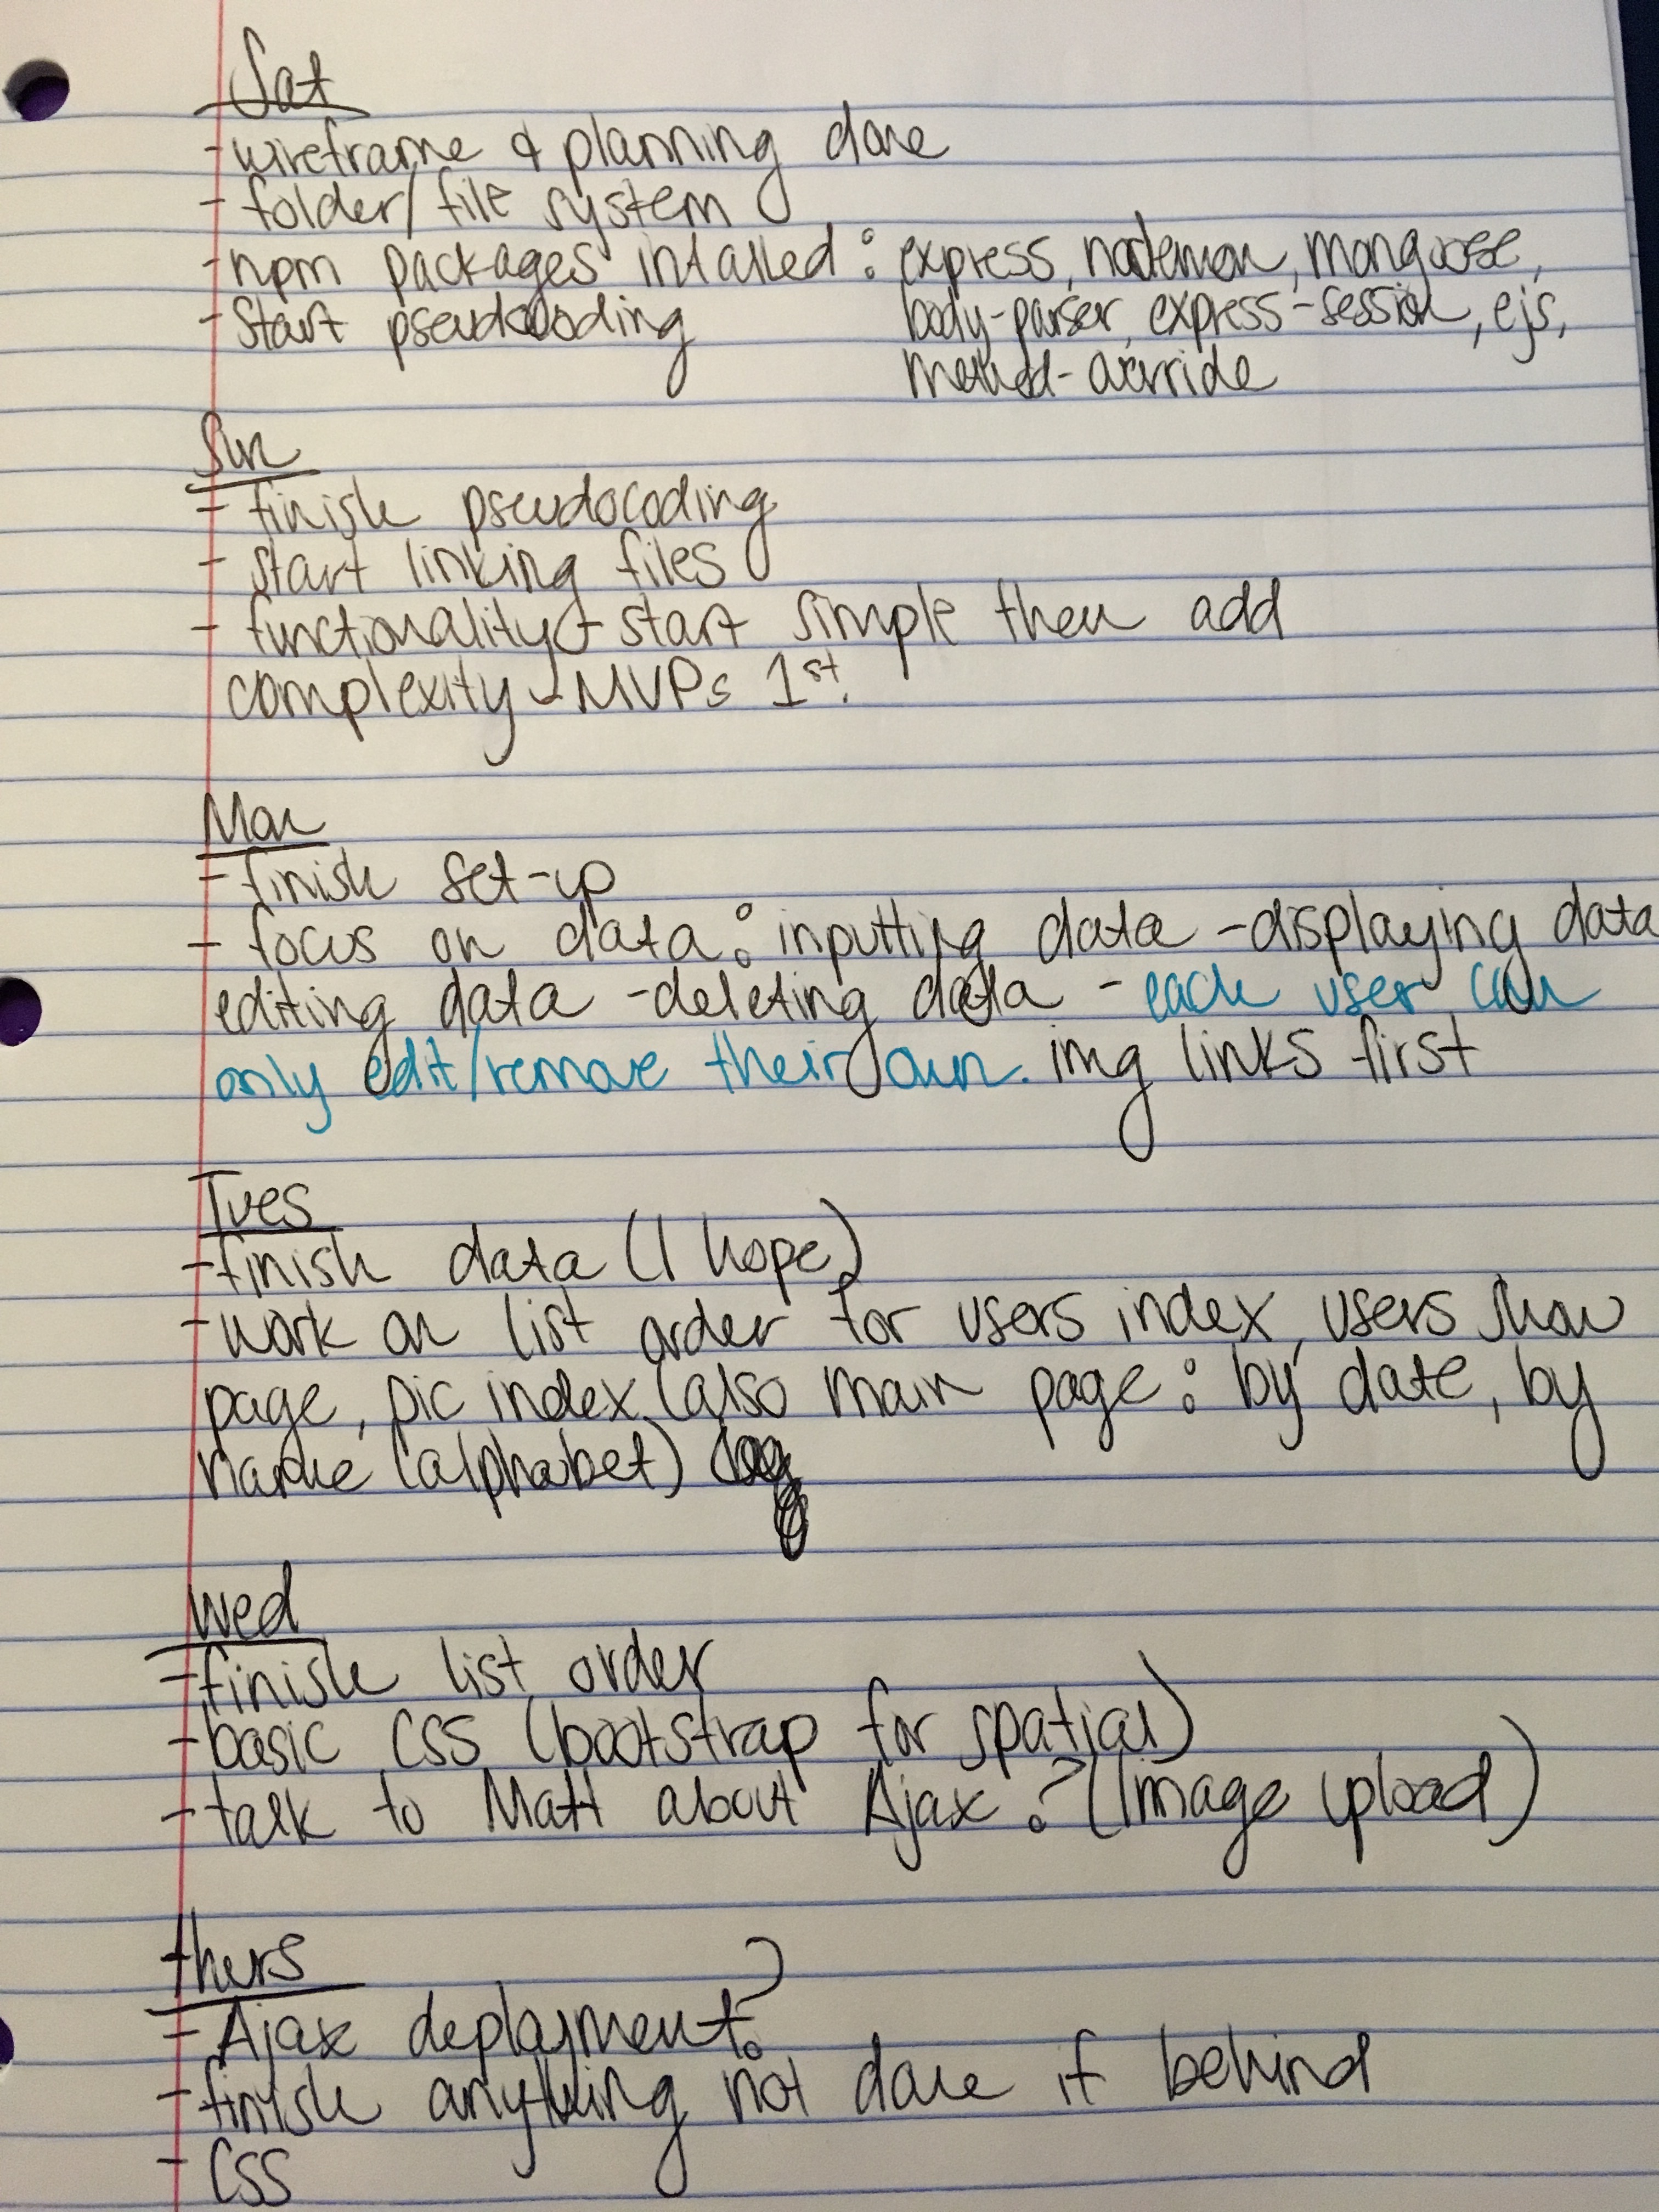 Sat
- wireframe & planning done
- folder/file system
- npm packages intalled : express, nodemon, mongoose,
- Start pseudocoding body-parser, express-session, ejs,
method-override
Sun
- finish pseudocoding
- start linking files
- functionality - start simple then add
complexity - MVPs 1st.
Mon
- finish set-up
- focus on data: inputting data - displaying data
editing data - deleting data - each user can
only edit/remove their own. img links first
Tues
- finish data (I hope)
- work on list order for users index, users show
page, pic index (also main page: by date, by
name (alphabet)
Wed
- finish list order
- basic CSS (bootstrap for spatial)
- talk to Matt about Ajax? (Image upload)
thurs
- Ajax deployment?
- finish anything not done if behind
- CSS